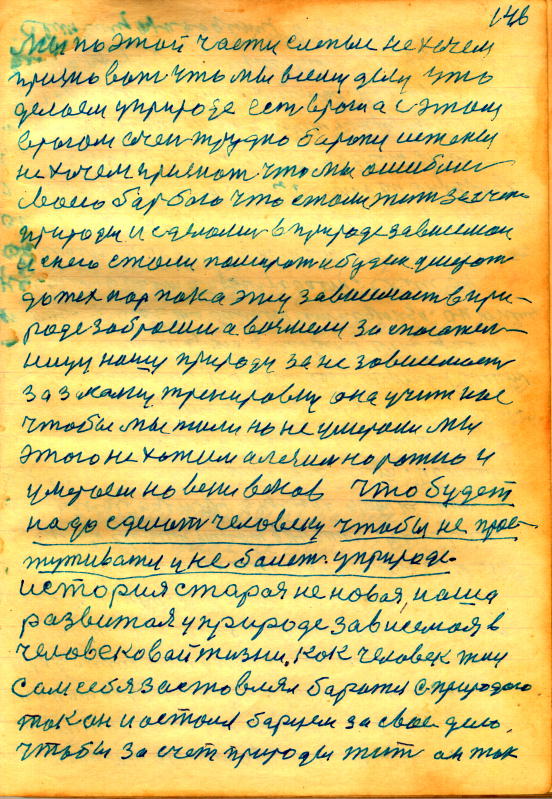 146
Мы по этой части слепые не хочем
признават что мы всему делу что
делаем у природе ест врог а с этом
врогом очен трудно баротся
не хочем признат что мы ошиблис
своею барбою что стали жит за счет
природы и сделалис в природе зависимом
и с него стали помират и будем умерат
до тех пор пока эту зависимост в при-
роде заброшим а возмемся за спасател-
ницу нашу природу за не зависимост
за закалку тренировку она учит нас
чтобы мы жили но не умерали мы
этого не хотим а лезим на рожно и
умераем на веки веков Что будет
надо сделат человеку чтобы не прос-
туживатся и не болет у природе.
история старая не новая, наша
развитая у природе зависемая в
человековай жизни. Как человек жил
сам себя заставлял баротся с природою
так он и остался барцем за свае дело,
чтобы за счет природы жит он так